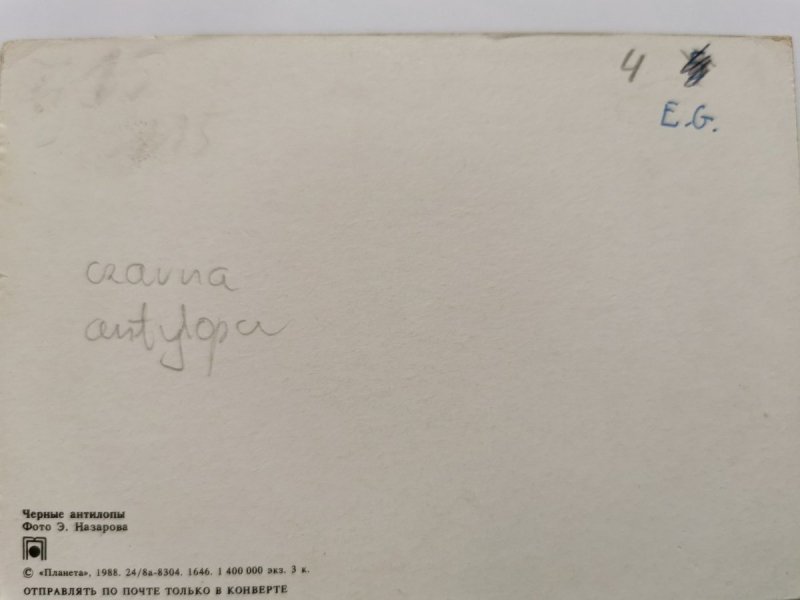 4
E.G.
czarna
antylopa
Черные антилопы
Фото Э. Назарова
© «Планета», 1988. 24/8а-8304. 1646. 1 400 000 экз. 3 к.
ОТПРАВЛЯТЬ ПО ПОЧТЕ ТОЛЬКО В КОНВЕРТЕ